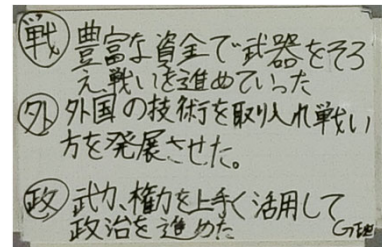 戦 豊富な資金で武器をそろ
え、戦いを進めていった
外 外国の技術を取り入れ戦い
方を発展させた。
政 武力、権力を上手く活用して
政治を進めた